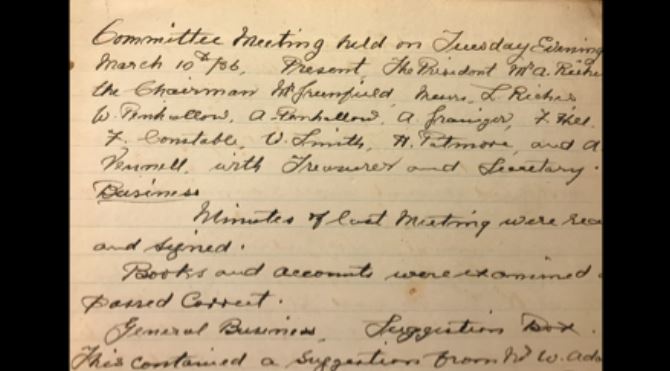 Committee Meeting held on Tuesday Evening
March 10th /36, Present, The President Mr A. Riche
the Chairman Mr Greenfield, Messrs, L. Riches
W. Penhallow, A. Penhallow, A Grainger, F. Hill
F. Constable, W. Smith, H. Patmore, and A
Vennell, with Treasurer and Secretary.
Business
Minutes of last Meeting were
and signed.
Books and accounts were examined
passed Correct.
General Business, Suggestion Box.
This contained a suggestion from Mr W.